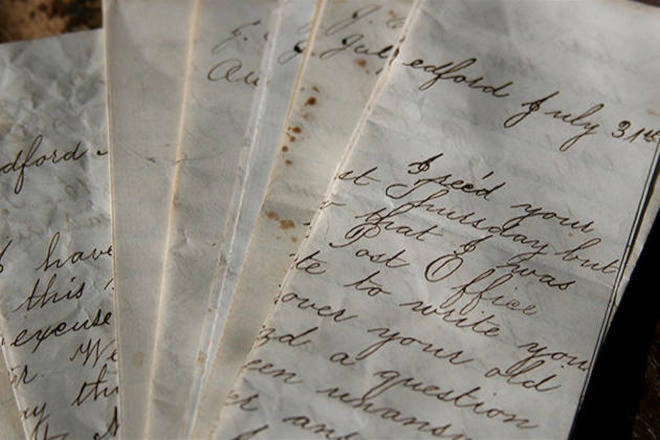 dford
have
this
excuse
We
Au
July
edford July 31st
I rec'd your
st Thursday but
that I was
Post Office
te to write you
over your old
a question
een unansw